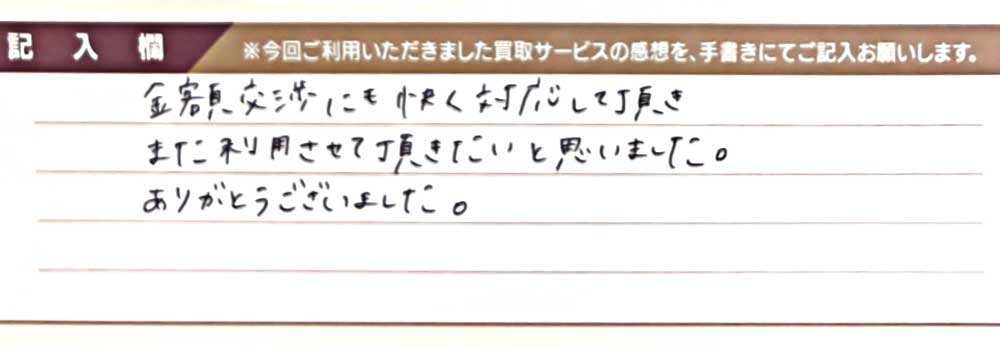 記入欄
※今回ご利用いただきました買取サービスの感想を、手書きにてご記入お願いします。
金額交渉にも快く対応して頂き
また利用させて頂きたいと思いました。
ありがとうございました。